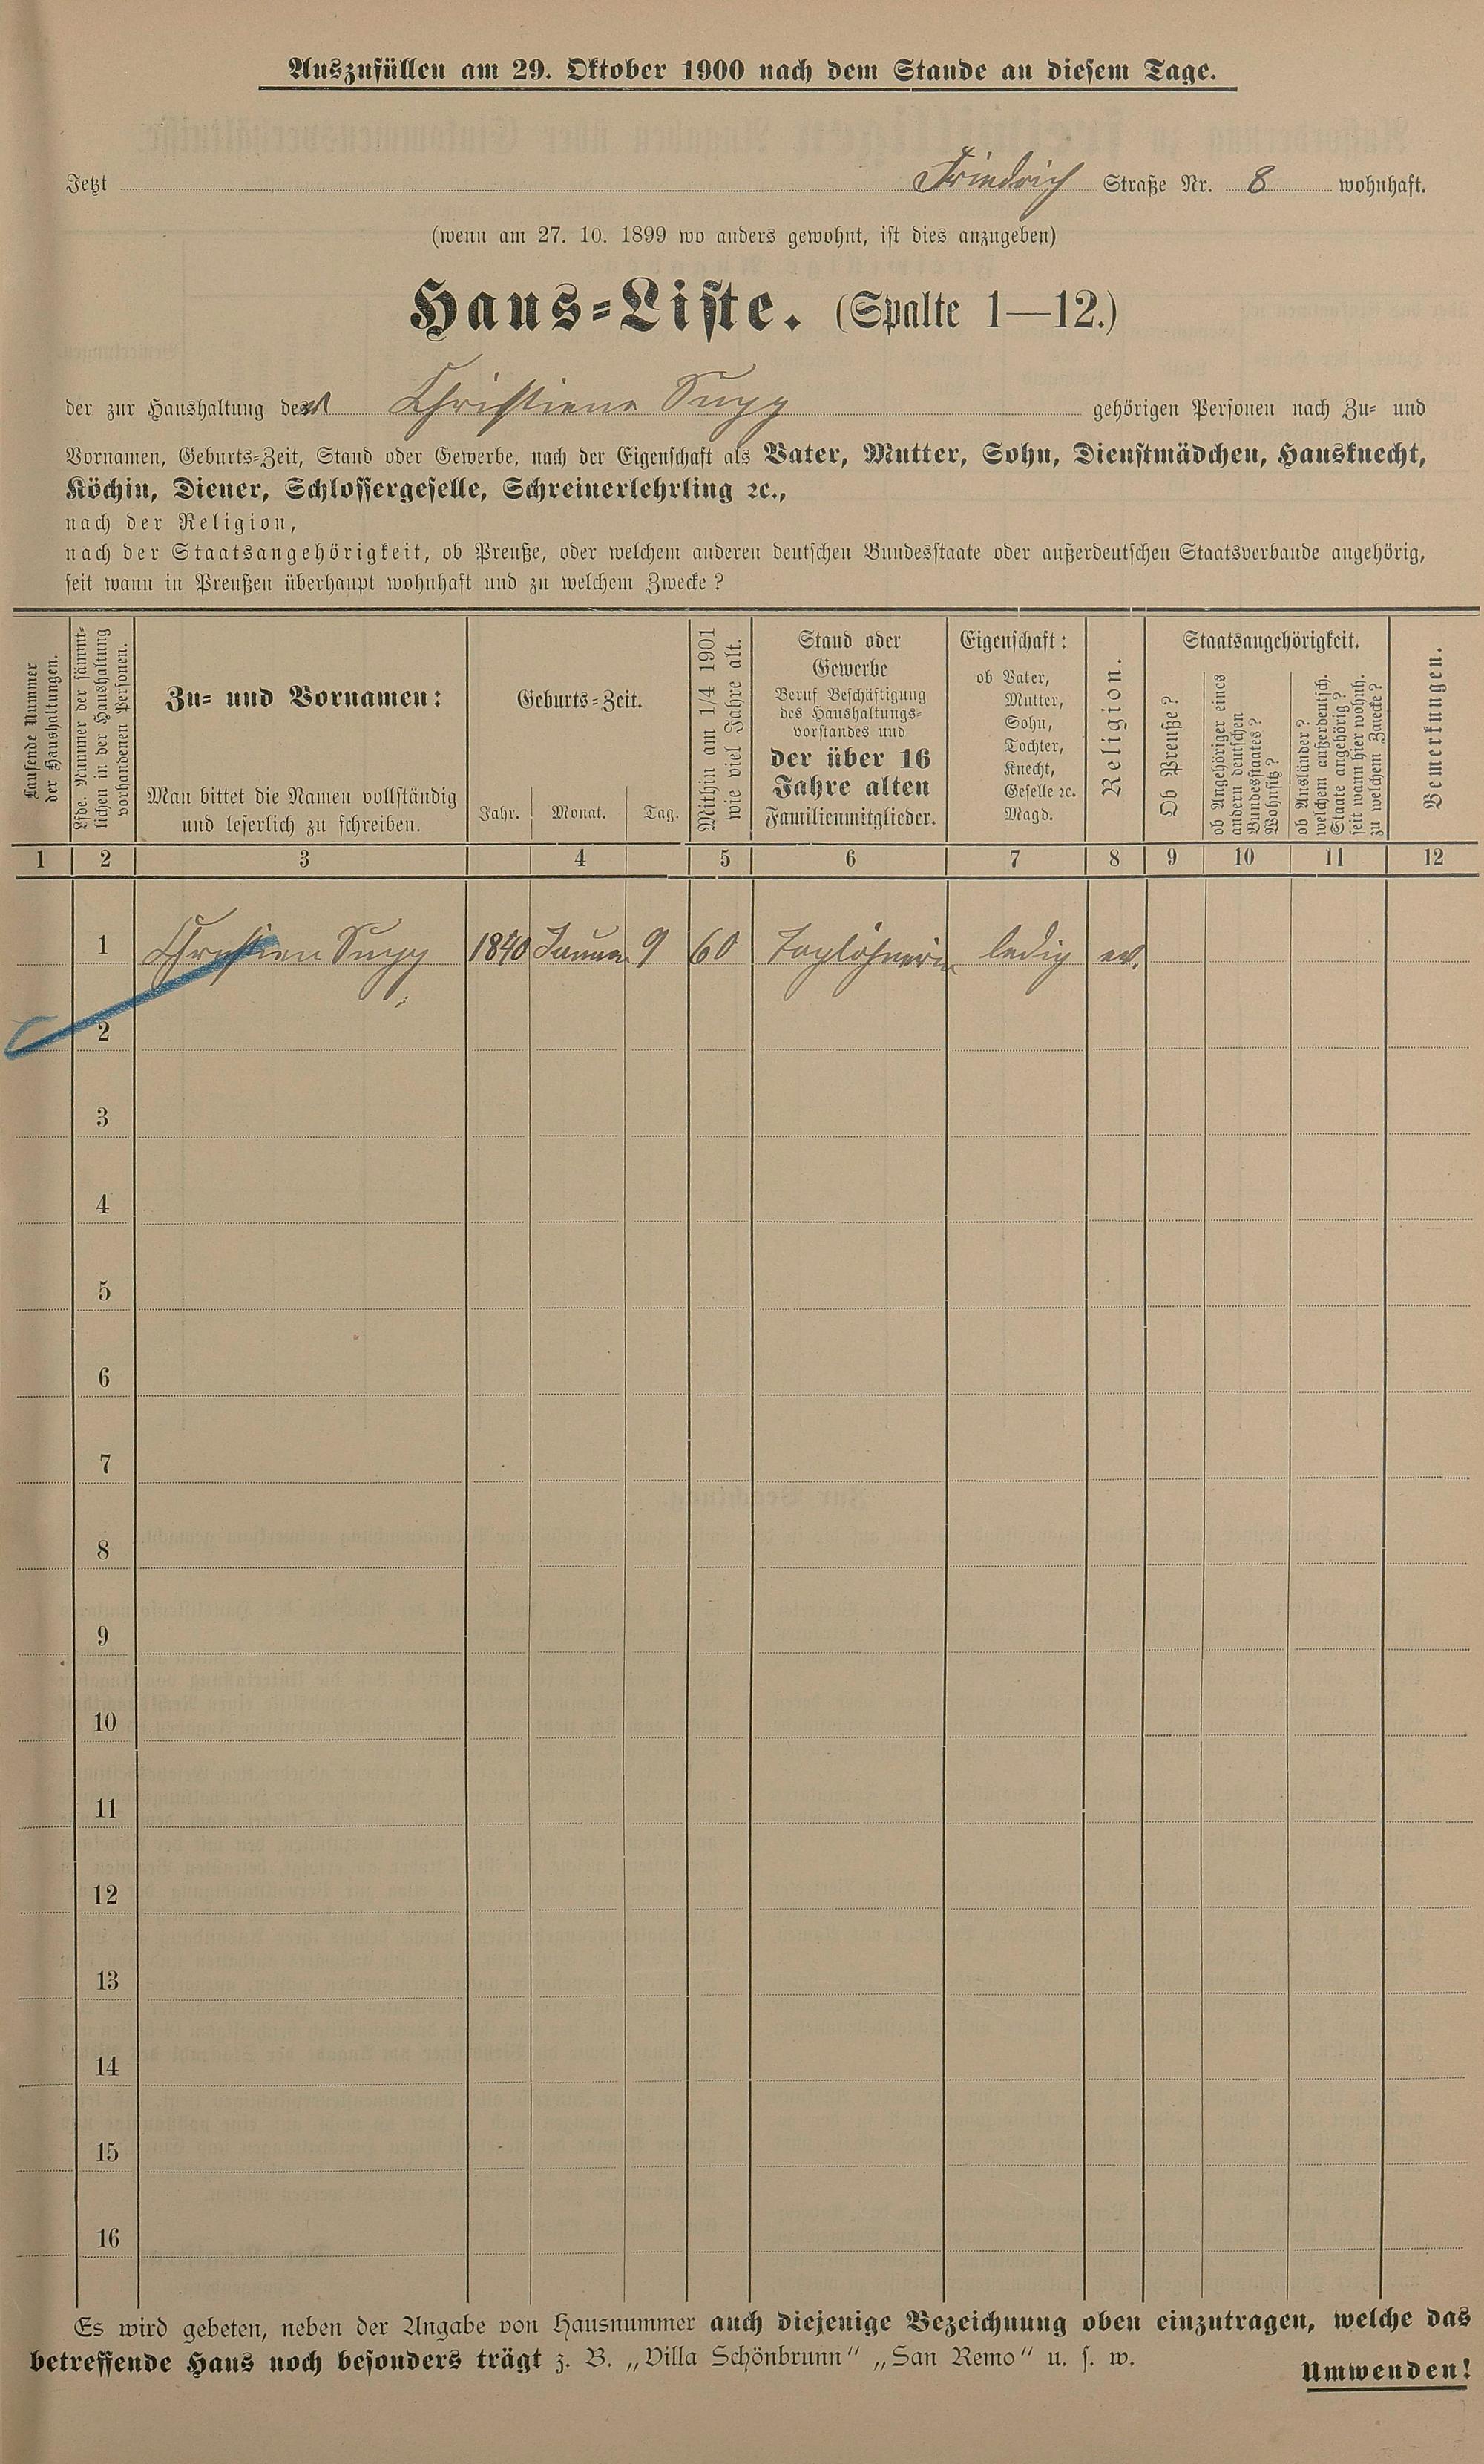 Auszufüllen am 29. Oktober 1900 nach dem Stande an diesem Tage.
Jetzt Friedrich Straße Nr. 8 wohnhaft.
(wenn am 27. 10. 1899 wo anders gewohnt, ist dies anzugeben)
Haus-Liste. (Spalte 1—12.)
der zur Haushaltung der Christiene Supp gehörigen Personen nach Zu- und
Vornamen, Geburts-Zeit, Stand oder Gewerbe, nach der Eigenschaft als Vater, Mutter, Sohn, Dienstmädchen, Hausknecht,
Köchin, Diener, Schlossergeselle, Schreinerlehrling ꝛc.,
nach der Religion,
nach der Staatsangehörigkeit, ob Preuße, oder welchem anderen deutschen Bundesstaate oder außerdeutschen Staatsverbande angehörig,
seit wann in Preußen überhaupt wohnhaft und zu welchem Zwecke?
Laufende Nummer
der Haushaltungen.
Lfde. Nummer der sämmt-
lichen in der Haushaltung
vorhandenen Personen.
Zu- und Vornamen:
Man bittet die Namen vollständig
und leserlich zu schreiben.
Geburts-Zeit.
Jahr. Monat. Tag.
Mithin am 1/4 1901
wie viel Jahre alt.
Stand oder
Gewerbe
Beruf Beschäftigung
des Haushaltungs-
vorstandes und
der über 16
Jahre alten
Familienmitglieder.
Eigenschaft:
ob Vater,
Mutter,
Sohn,
Tochter,
Knecht,
Geselle ꝛc.
Magd.
Religion.
Staatsangehörigkeit.
Ob Preuße?
ob Angehöriger eines
andern deutschen
Bundesstaates?
Wohnsitz?
ob Ausländer?
welchem außerdeutsch.
Staate angehörig?
seit wann hier wohnh.
zu welchem Zwecke?
Bemerkungen.
1 2 3 4 5 6 7 8 9 10 11 12
1 Christien Supp 1840 Januar 9 60 Taglöhnerin ledig ev.
2
3
4
5
6
7
8
9
10
11
12
13
14
15
16
Es wird gebeten, neben der Angabe von Hausnummer auch diejenige Bezeichnung oben einzutragen, welche das
betreffende Haus noch besonders trägt z. B. „Villa Schönbrunn“ „San Remo“ u. s. w.
Umwenden!